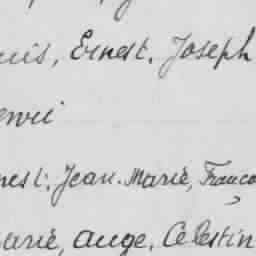 uis, Ernest, Joseph
enri
nest, Jean-Marie, Franço
arie, Ange, Célestin